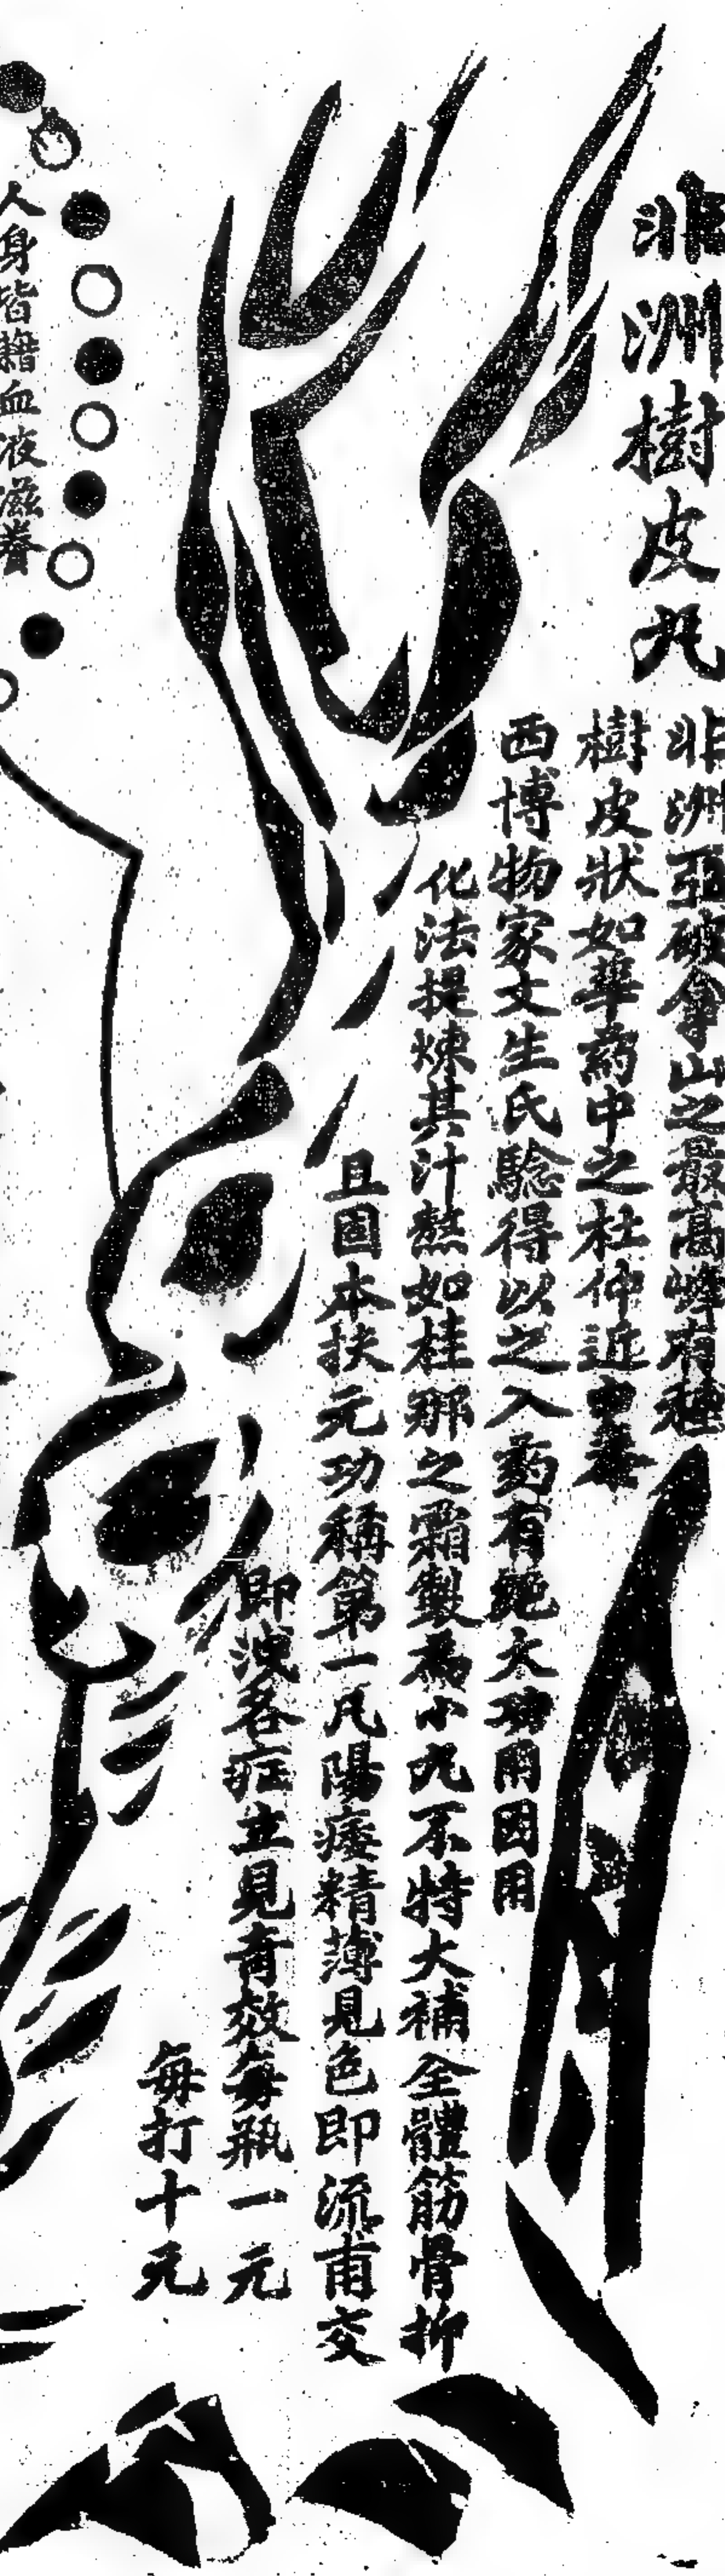 非洲樹皮丸
非洲亞破拿山之最高峰有種
樹皮狀如華葯中之杜仲近由泰
西博物家文生氏騐得以之入葯有絕大功用因用
化法提煉其汁熬如桂那之霜製為小丸不特大補全體筋骨抑
且固本扶元功稱第一凡陽痿精薄見色即流甫交
即洩各症立見奇效每瓶一元
每打十元
人身皆藉血液滋養